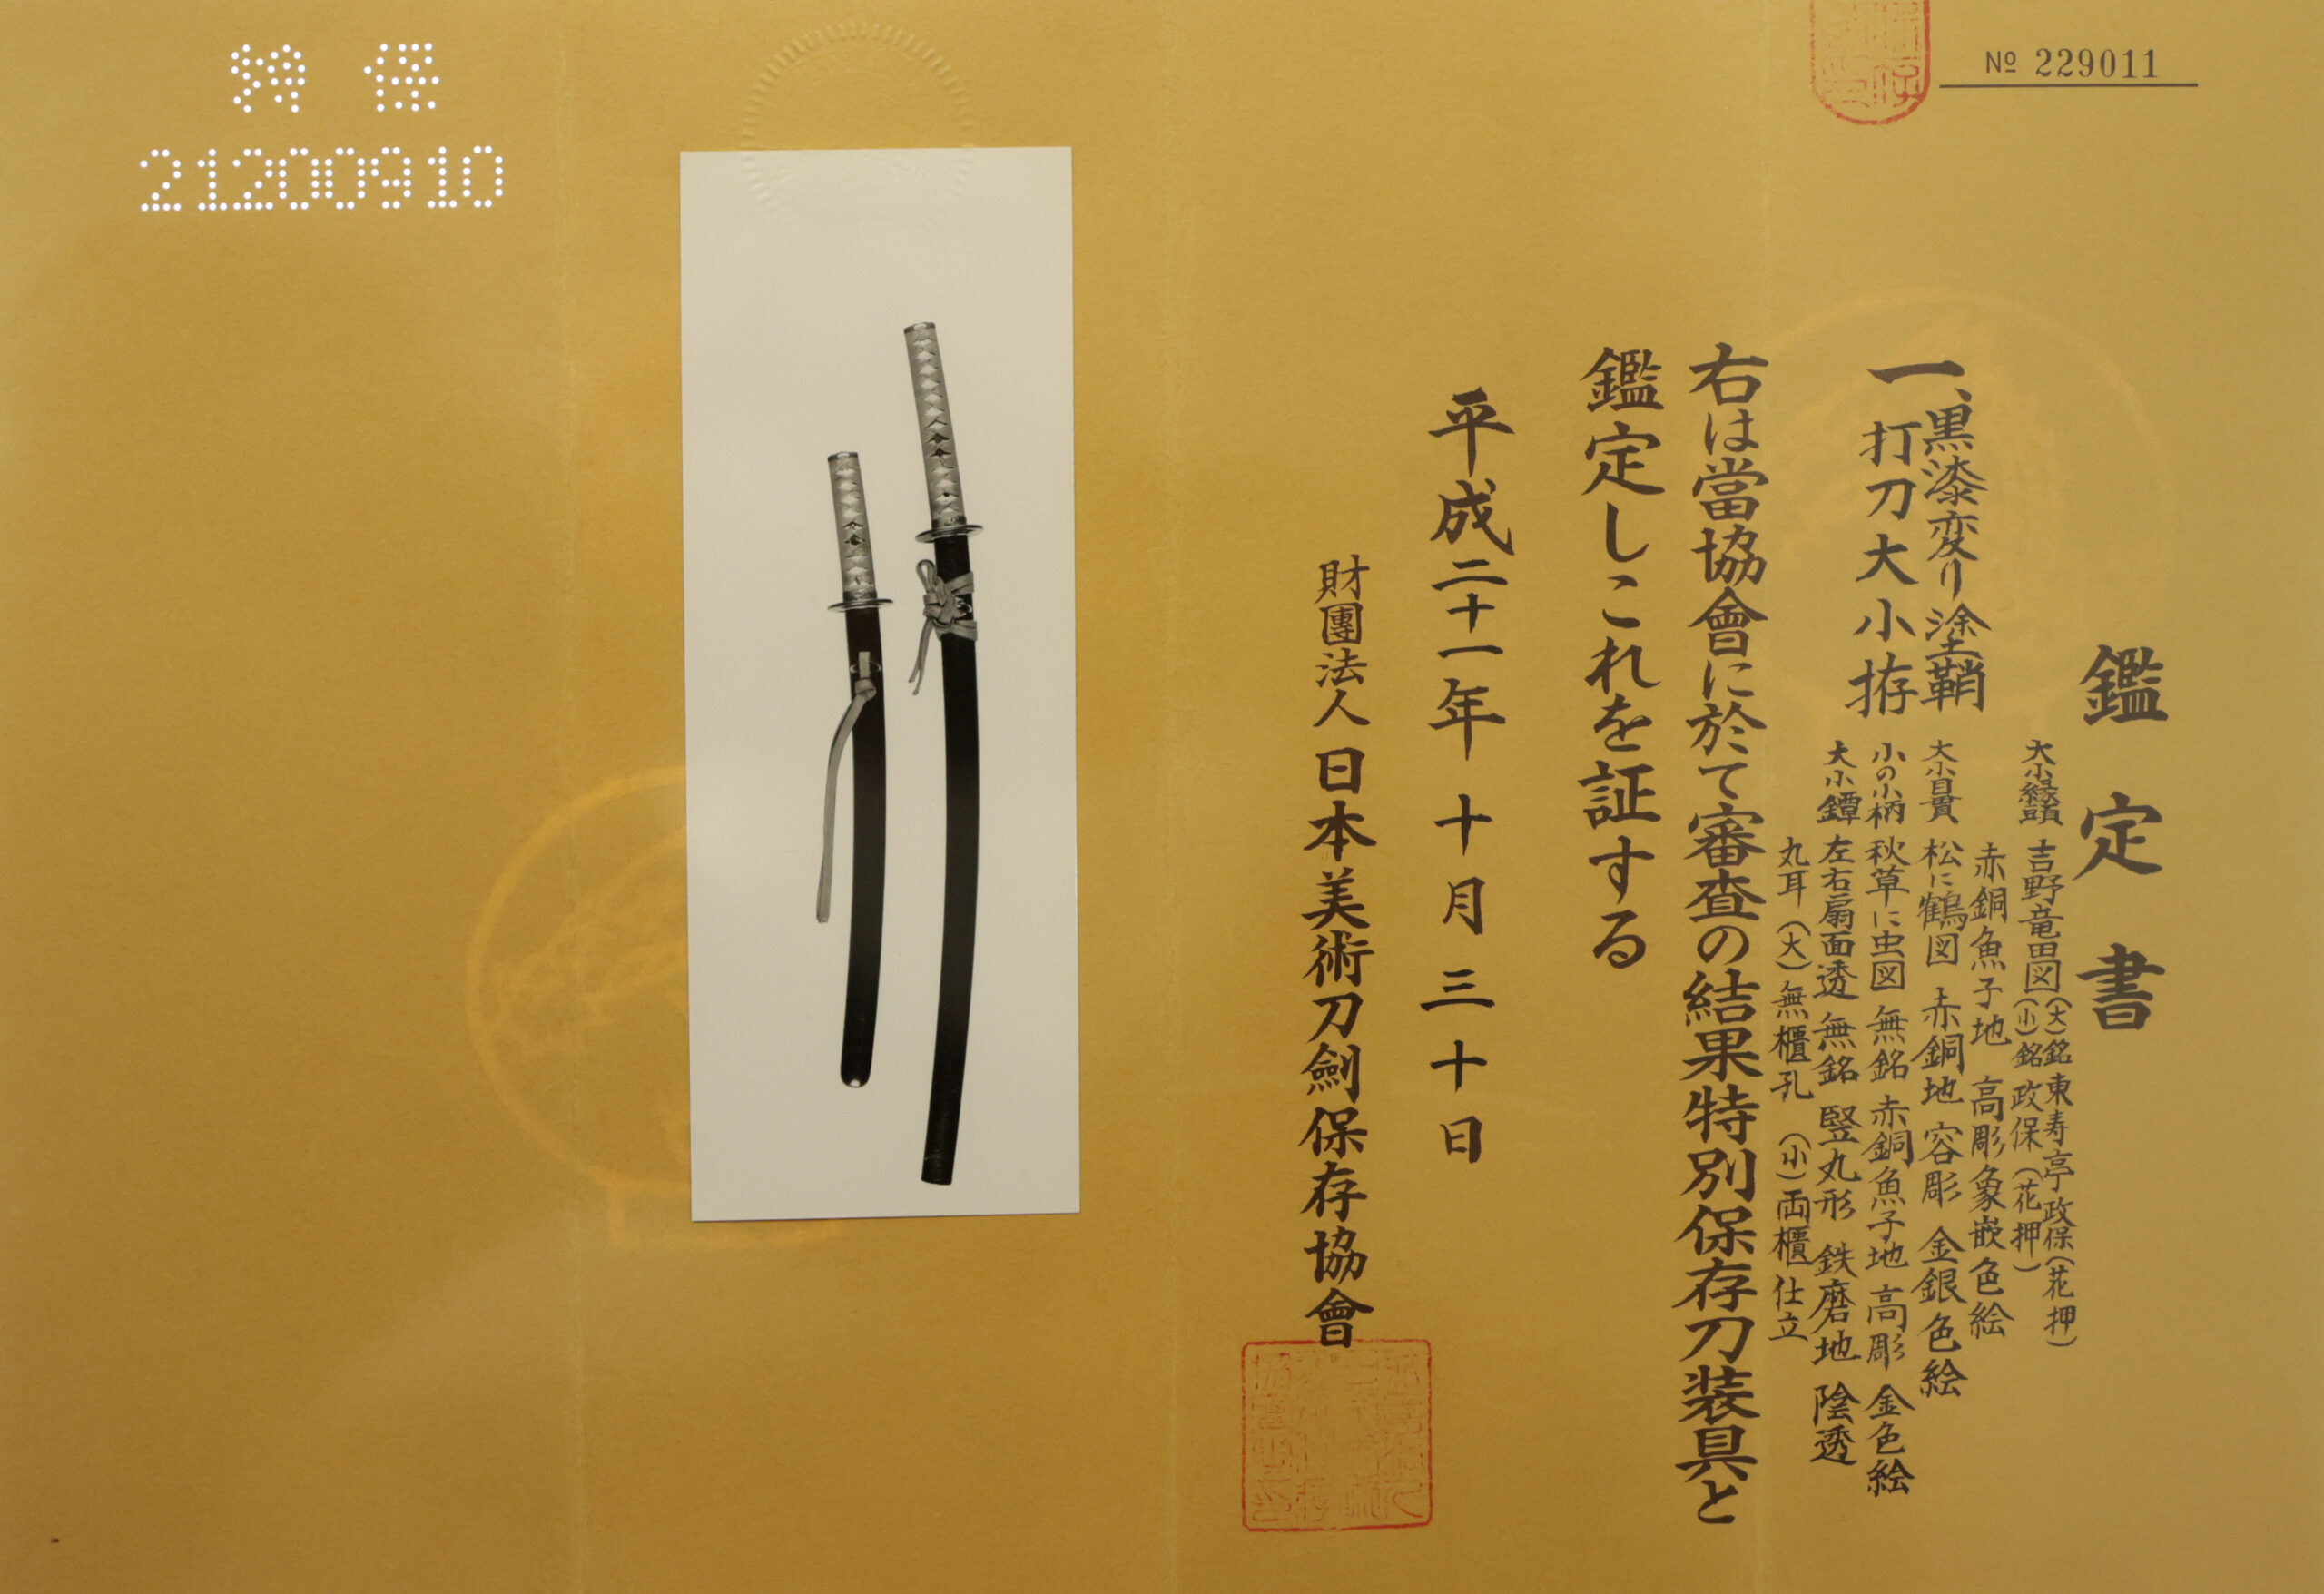 № 229011
鑑定書
一、黒漆変り塗鞘
打刀大小拵
大小縁頭 吉野竜田図 (大)銘 東寿亭政保(花押)
(小)銘 政保(花押)
赤銅魚子地 高彫象嵌色絵
大小目貫 松に鶴図 赤銅地 容彫 金銀色絵
小の小柄 秋草に虫図 無銘 赤銅魚子地 高彫 金色絵
大小鐔 左右扇面透 無銘 竪丸形 鉄磨地 陰透
丸耳 (大)無櫃孔 (小)両櫃仕立
右は當協會に於て審査の結果特別保存刀装具と
鑑定しこれを証する
平成二十一年十月三十日
財團法人 日本美術刀劍保存協會
特保
21200910